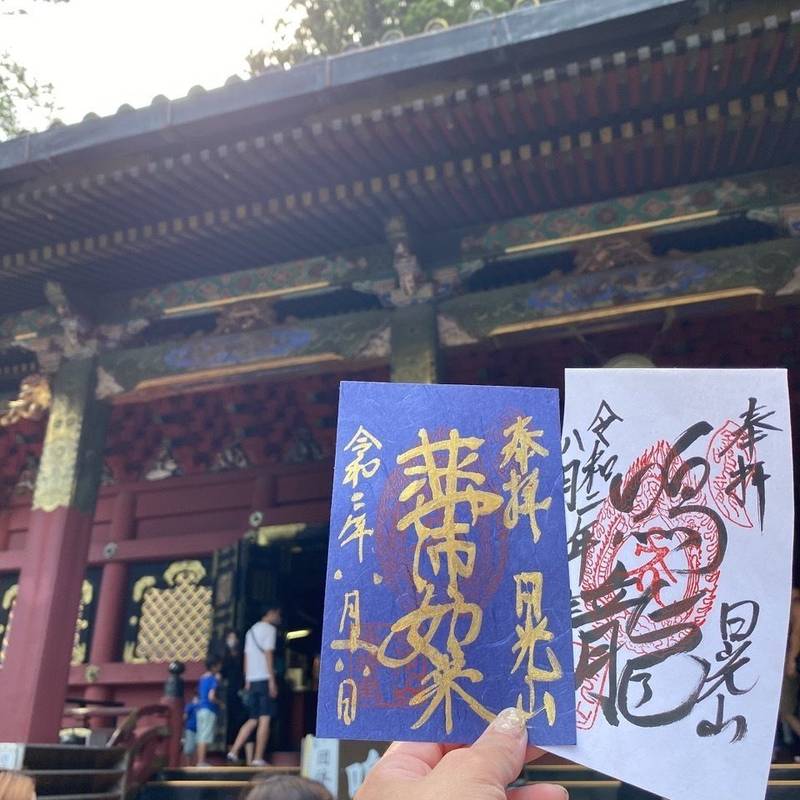 奉拝 日光山
薬師如来
令和二年
奉拝 日光山
鳴龍
令和二年
八月